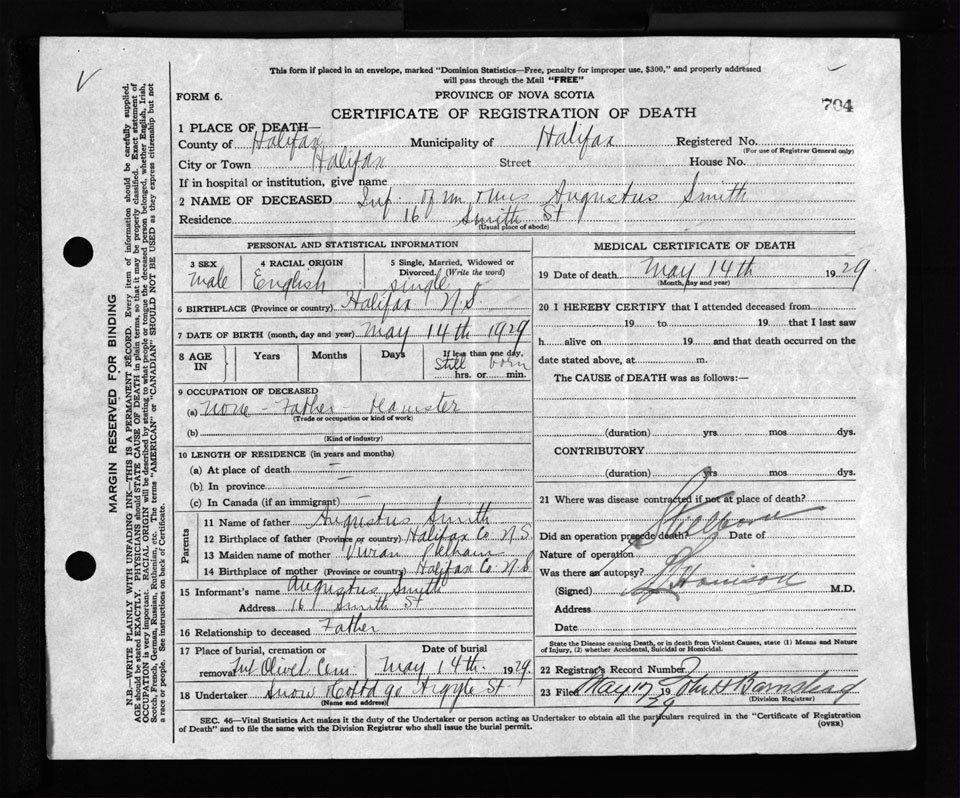 This form if placed in an envelope, marked "Dominion Statistics—Free, penalty for improper use, $300," and properly addressed
will pass through the Mail "FREE"
FORM 6.
PROVINCE OF NOVA SCOTIA
794
CERTIFICATE OF REGISTRATION OF DEATH
1 PLACE OF DEATH—
County of Halifax Municipality of Halifax Registered No.
(For use of Registrar General only)
City or Town Halifax Street House No.
If in hospital or institution, give name
2 NAME OF DECEASED Inf. of Mr & Mrs Augustus Smith
Residence 16 Smith St
(Usual place of abode)
PERSONAL AND STATISTICAL INFORMATION
3 SEX
Male
4 RACIAL ORIGIN
English
5 Single, Married, Widowed or
Divorced (Write the word)
single
6 BIRTHPLACE (Province or country) Halifax N.S.
7 DATE OF BIRTH (month, day and year) May 14th 1929
8 AGE IN
Years
Months
Days
If less than one day,
Still born
hrs. or min.
9 OCCUPATION OF DECEASED
(a) none - Father Teamster
(Trade or occupation or kind of work)
(b)
(Kind of industry)
10 LENGTH OF RESIDENCE (in years and months)
(a) At place of death —
(b) In province —
(c) In Canada (if an immigrant) —
Parents
11 Name of father Augustus Smith
12 Birthplace of father (Province or country) Halifax Co. N.S.
13 Maiden name of mother Vivian
14 Birthplace of mother (Province or country) Halifax Co. N.S
15 Informant's name Augustus Smith
Address 16 Smith St
16 Relationship to deceased Father
17 Place of burial, cremation or Date of burial
removal Mt Olivet Cem May 14th 1929.
18 Undertaker Snow & Co Ltd 90 Argyle St
(Name and address)
MEDICAL CERTIFICATE OF DEATH
19 Date of death May 14th 1929.
(Month, day and year)
20 I HEREBY CERTIFY that I attended deceased from
19 to 19 that I last saw
h alive on 19 and that death occurred on the
date stated above, at m.
The CAUSE of DEATH was as follows:—
(duration) yrs mos dys.
CONTRIBUTORY
(duration) yrs. mos dys.
21 Where was disease contracted if not at place of death?
Stillborn
Did an operation precede death? Date of
Nature of operation
Was there an autopsy?
(Signed) Harrison M.D.
Address
Date
State the Disease causing Death, or in death from Violent Causes, state (1) Means and Nature
of Injury, (2) whether Accidental, Suicidal or Homicidal.
22 Registrar's Record Number
23 Filed May 17 1929 John H Barnstead
(Division Registrar)
SEC. 46—Vital Statistics Act makes it the duty of the Undertaker or person acting as Undertaker to obtain all the particulars required in the "Certificate of Registration
of Death" and to file the same with the Division Registrar who shall issue the burial permit.
(OVER)
MARGIN RESERVED FOR BINDING
N.B.—WRITE PLAINLY WITH UNFADING INK—THIS IS A PERMANENT RECORD. Every item of information should be carefully supplied.
AGE should be stated EXACTLY. PHYSICIANS should STATE CAUSE OF DEATH in plain terms, so that it may be properly classified. Exact statement of
OCCUPATION is very important. RACIAL ORIGIN will be described by stating to what people or tongue the deceased person belonged, whether English, Irish,
Scotch, French, German, Russian, Ruthenian, etc. The terms "AMERICAN" or "CANADIAN" SHOULD NOT BE USED as they express citizenship but not
a race or people. See instructions on back of Certificate.